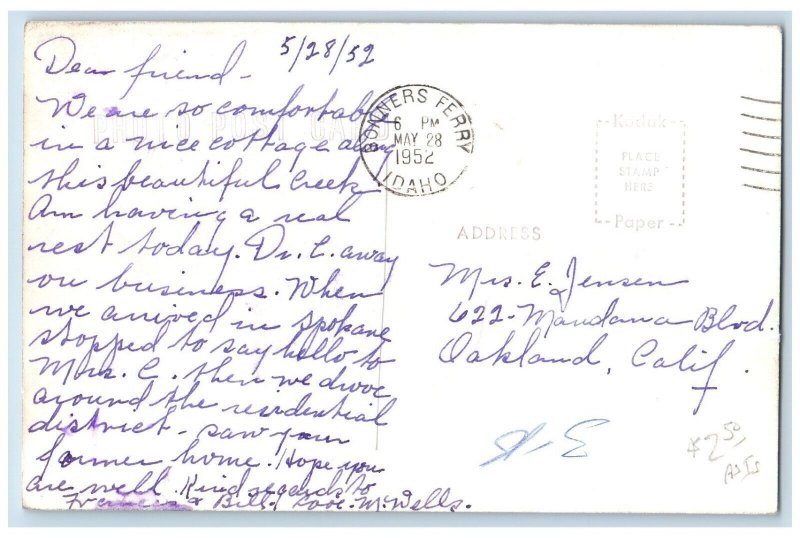 5/28/52
Dear friend -
We are so comfortable
in a nice cottage along
this beautiful Creek.
Am having a real
rest today. Dr. C. away
on business. When
we arrived in Spokane
stopped to say hello to
Mrs. C. then we drove
around the residential
district - saw your
former home. Hope you
are well. Kind regards to
& Bill. Love. M. Wells.
PHOTO POST CARD
BONNERS FERRY
6 PM
MAY 28
1952
IDAHO
Kodak
PLACE
STAMP
HERE
Paper
ADDRESS
Mrs. E. Jensen
622 - Mandana Blvd.
Oakland, Calif.
$2.50